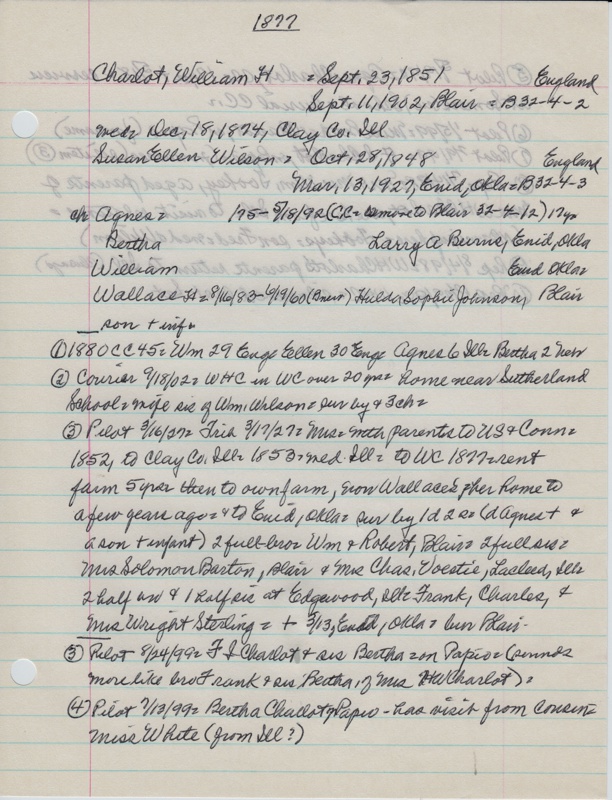 1877
Charlot, William H = Sept. 23, 1851 England
Sept. 11, 1902, Blair = B32-4-2
med= Dec, 18, 1874, Clay Co. Ill
Susan Ellen Wilson = Oct, 28, 1848 England
Mar, 13, 1927, Enid, Okla = B32-4-3
ch Agnes = 175- 5/18/92 (CC= to Blair 32-4-12) 17yr
Bertha Larry A Burns, Enid, Okla
William Enid Okla=
Wallace H = 8/16/83- 6/19/60 Hilda Sophie Johnson, Blair
son + inf=
① 1880 CC45= Wm 29 Eng= Ellen 30 Eng= Agnes 6 Ill= Bertha 2 Neb
② Courier 9/18/02= WHC in WC over 20 yrs= home near Sutherland
School= wife sis of Wm. Wilson= sur by & 3ch=
③ Pilot 3/16/27= Trib 3/17/27= Mrs= with parents to US & Conn=
1852, to Clay Co. Ill= 1853= med Ill= to WC 1877= rent
farm 5yrs= then to own farm, now Wallace's= her home to
a few years ago= & to Enid, Okla= sur by 1d 2s= (d Agnes + &
a son + infant) 2 full bro= Wm & Robert, Blair= 2 full sis=
Mrs Solomon Barton, Blair & Mrs Chas. Voestie, Laclede, Ill=
2 half bro & 1 half sis at Edgewood, Ill= Frank, Charles, &
Mrs Wright Sterling = + 3/13, Enid, Okla= bur Blair-
③ Pilot 8/24/99= F S Charlot & sis Bertha= on Papio= (sounds
more like bro Frank & sis Bertha, of Mrs WH Charlot) =
④ Pilot 7/13/99= Bertha Charlot of Papio - has visit from cousin=
Miss White (from Ill?)